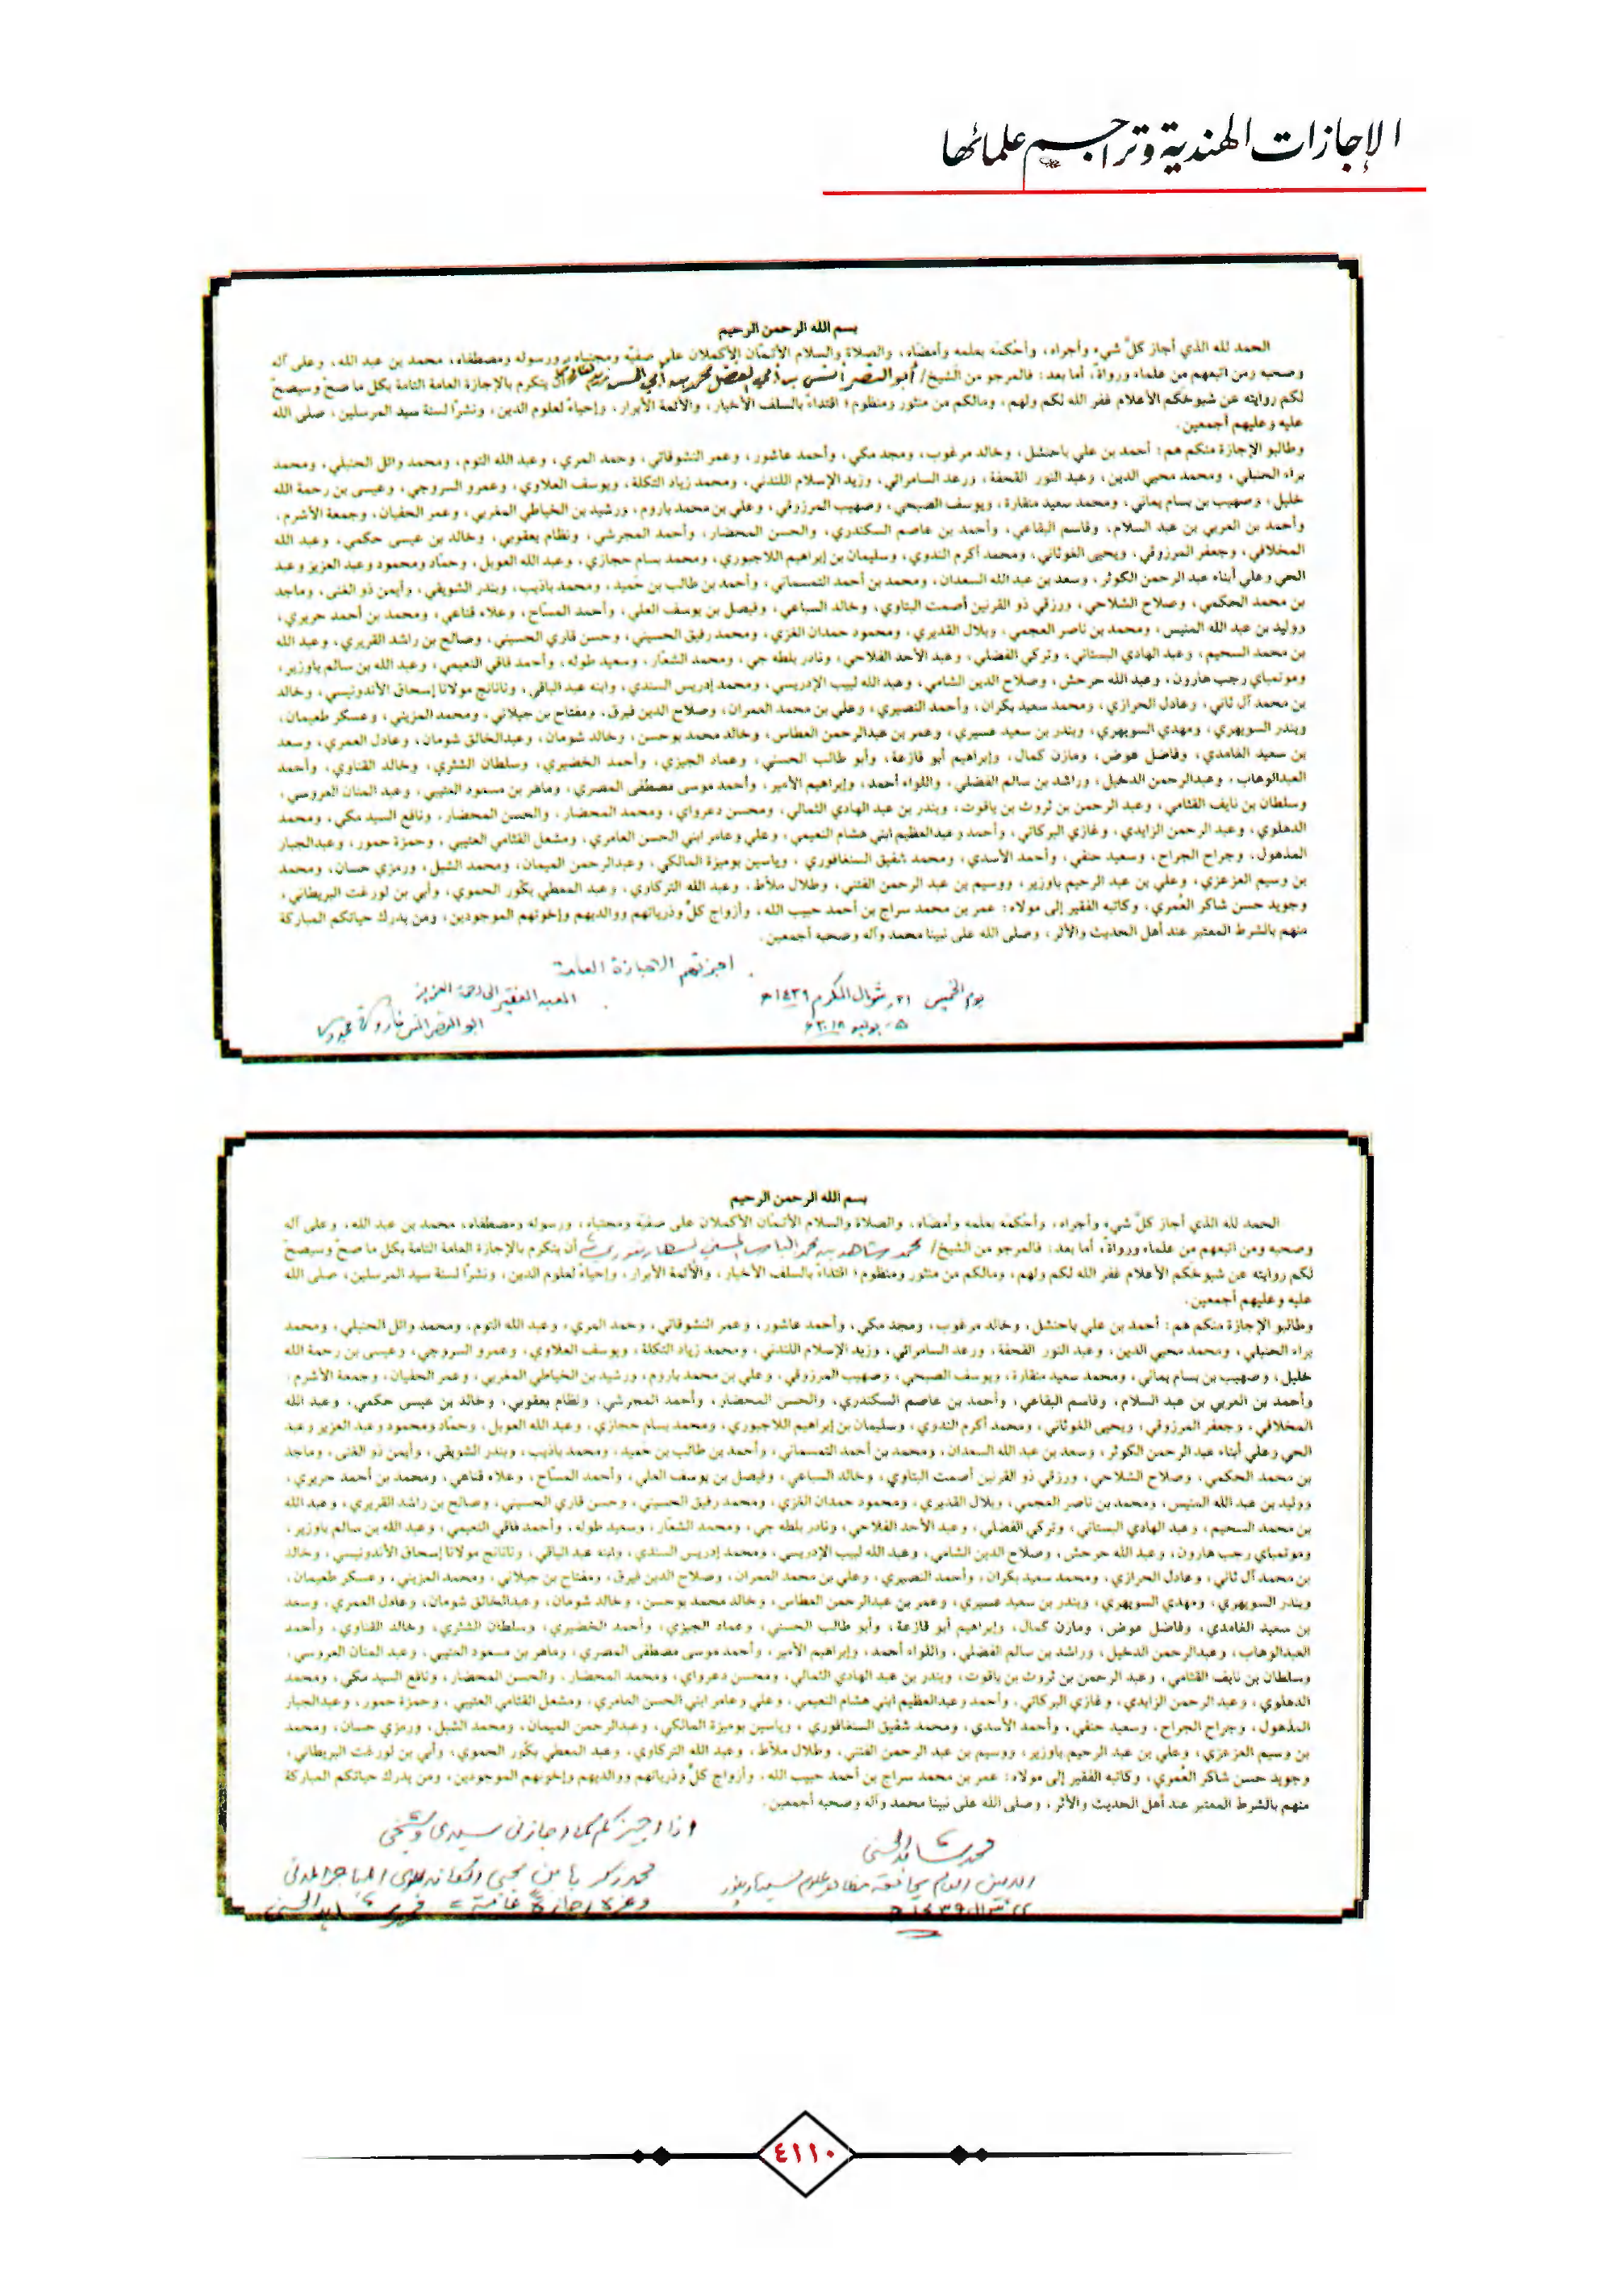 الإجازات الهندية وتراجم علمائها
بسم الله الرحمن الرحيم
الحمد لله الذي أجاز كلَّ شيء وأجراه، وأحْكمَه بعلمه وأمضَاه، والصلاة والسلام الأتمّان الأكملان على صفيّه ومجتباه ورسوله ومصطفاه، محمد بن عبد الله، وعلى آله
وصحبه ومن اتبعهم من علماء ورواة، أما بعد: فالمرجو من الشيخ/ أبو النصر أنس بن أبي الفضل محمد بن أبي أن يتكرم بالإجازة العامة التامة بكل ما صحّ وسيصحّ
لكم روايته عن شيوخكم الأعلام غفر الله لكم ولهم، ومالكم من منثور ومنظوم؛ اقتداءً بالسلف الأخيار، والأئمة الأبرار، وإحياءً لعلوم الدين، ونشرًا لسنة سيد المرسلين، صلى الله
عليه وعليهم أجمعين.
وطالبو الإجازة منكم هم: أحمد بن علي باحنشل، وخالد مرغوب، ومجد مكي، وأحمد عاشور، وعمر النشوقاتي، وحمد المري، وعبد الله التوم، ومحمد وائل الحنبلي، ومحمد
براء الحنبلي، ومحمد محيي الدين، وعبد النور القحفة، ورعد السامرائي، وزيد الإسلام اللندني، ومحمد زياد التكلة، ويوسف العلاوي، وعمرو السروجي، وعيسى بن رحمة الله
خليل، وصهيب بن بسام يماني، ومحمد سعيد منقارة، ويوسف الصبحي، وصهيب المرزوقي، وعلي بن محمد باروم، ورشيد بن الخياطي المغربي، وعمر الحفيان، وجمعة الأشرم،
وأحمد بن العربي بن عبد السلام، وقاسم البقاعي، وأحمد بن عاصم السكندري، والحسن المحضار، وأحمد المجرشي، ونظام يعقوبي، وخالد بن عيسى حكمي، وعبد الله
المخلافي، وجعفر المرزوقي، ويحيى الغوثاني، ومحمد أكرم الندوي، وسليمان بن إبراهيم اللاجبوري، ومحمد بسام حجازي، وعبد الله العوبل، وحمّاد ومحمود وعبد العزيز وعبد
الحي وعلي أبناء عبد الرحمن الكوثر، وسعد بن عبد الله السعدان، ومحمد بن أحمد التمسماني، وأحمد بن طالب بن حميد، ومحمد باذيب، وبندر الشويقي، وأيمن ذو الغنى، وماجد
بن محمد الحكمي، وصلاح الشلاحي، ورزقي ذو القرنين أصمت البتاوي، وخالد السباعي، وفيصل بن يوسف العلي، وأحمد المسّاح، وعلاء قناعي، ومحمد بن أحمد حريري،
ووليد بن عبد الله المنيس، ومحمد بن ناصر العجمي، وبلال القديري، ومحمود حمدان الغزي، ومحمد رفيق الحسيني، وحسن قاري الحسيني، وصالح بن راشد القريري، وعبد الله
بن محمد السحيم، وعبد الهادي البستاني، وتركي الفضلي، وعبد الأحد الفلاحي، ونادر بلطه جي، ومحمد الشعّار، وسعيد طوله، وأحمد فاقي النعيمي، وعبد الله بن سالم باوزير،
وموتمباي رجب هارون، وعبد الله حرحش، وصلاح الدين الشامي، وعبد الله لبيب الإدريسي، ومحمد إدريس السندي، وابنه عبد الباقي، ونانانج مولانا إسحاق الأندونيسي، وخالد
بن محمد آل ثاني، وعادل الحرازي، ومحمد سعيد بكران، وأحمد النصيري، وعلي بن محمد العمران، وصلاح الدين فيرق، ومفتاح بن جيلاني، ومحمد المزيني، وعسكر طعيمان،
وبندر السويهري، ومهدي السويهري، وبندر بن سعيد عسيري، وعمر بن عبدالرحمن العطاس، وخالد محمد بوحسن، وخالد شومان، وعبدالخالق شومان، وعادل العمري، وسعد
بن سعيد الغامدي، وفاضل عوض، ومازن كمال، وإبراهيم أبو قازعة، وأبو طالب الحسني، وعماد الجيزي، وأحمد الخضيري، وسلطان الشثري، وخالد القناوي، وأحمد
العبدالوهاب، وعبدالرحمن الدخيل، وراشد بن سالم الفضلي، واللواء أحمد، وإبراهيم الأمير، وأحمد موسى مصطفى المصري، وماهر بن مسعود العتيبي، وعبد المنان العروسي،
وسلطان بن نايف القثامي، وعبد الرحمن بن ثروت بن ياقوت، وبندر بن عبد الهادي الثمالي، ومحسن دعرواي، ومحمد المحضار، والحسن المحضار، ونافع السيد مكي، ومحمد
الدهلوي، وعبد الرحمن الزايدي، وغازي البركاتي، وأحمد وعبدالعظيم ابني هشام النعيمي، وعلي وعامر ابني الحسن العامري، ومشعل القثامي العتيبي، وحمزة حمور، وعبدالجبار
المذهول، وجراح الجراح، وسعيد حنفي، وأحمد الأسدي، ومحمد شفيق السنغافوري، وياسين بوميزة المالكي، وعبدالرحمن الميمان، ومحمد الشبل، ورمزي حسان، ومحمد
بن وسيم العزعزي، وعلي بن عبد الرحيم باوزير، ووسيم بن عبد الرحمن الفتني، وطلال ملأط، وعبد الله التركاوي، وعبد المعطي بكّور الحموي، وأبي بن لورغت البريطاني،
وجويد حسن شاكر العُمري، وكاتبه الفقير إلى مولاه: عمر بن محمد سراج بن أحمد حبيب الله، وأزواج كلٍّ وذرياتهم ووالديهم وإخوتهم الموجودين، ومن يدرك حياتكم المباركة
منهم بالشرط المعتبر عند أهل الحديث والأثر، وصلى الله على نبينا محمد وآله وصحبه أجمعين.
أجزتهم الاجازة العامة
يوم الخميس ٢١ شوال المكرم ١٤٣٩ھ
العبد الفقير الى رحمة العزيز
٥ يوليو ٢٠١٨ء
ابو النصر انس
بسم الله الرحمن الرحيم
الحمد لله الذي أجاز كلَّ شيء وأجراه، وأحْكمَه بعلمه وأمضَاه، والصلاة والسلام الأتمّان الأكملان على صفيّه ومجتباه، ورسوله ومصطفاه، محمد بن عبد الله، وعلى آله
وصحبه ومن اتبعهم من علماء ورواة، أما بعد: فالمرجو من الشيخ/ محمد شاهد بن محمد الحسني السهارنفوري أن يتكرم بالإجازة العامة التامة بكل ما صحّ وسيصحّ
لكم روايته عن شيوخكم الأعلام غفر الله لكم ولهم، ومالكم من منثور ومنظوم؛ اقتداءً بالسلف الأخيار، والأئمة الأبرار، وإحياءً لعلوم الدين، ونشرًا لسنة سيد المرسلين، صلى الله
عليه وعليهم أجمعين.
وطالبو الإجازة منكم هم: أحمد بن علي باحنشل، وخالد مرغوب، ومجد مكي، وأحمد عاشور، وعمر النشوقاتي، وحمد المري، وعبد الله التوم، ومحمد وائل الحنبلي، ومحمد
براء الحنبلي، ومحمد محيي الدين، وعبد النور القحفة، ورعد السامرائي، وزيد الإسلام اللندني، ومحمد زياد التكلة، ويوسف العلاوي، وعمرو السروجي، وعيسى بن رحمة الله
خليل، وصهيب بن بسام يماني، ومحمد سعيد منقارة، ويوسف الصبحي، وصهيب المرزوقي، وعلي بن محمد باروم، ورشيد بن الخياطي المغربي، وعمر الحفيان، وجمعة الأشرم،
وأحمد بن العربي بن عبد السلام، وقاسم البقاعي، وأحمد بن عاصم السكندري، والحسن المحضار، وأحمد المجرشي، ونظام يعقوبي، وخالد بن عيسى حكمي، وعبد الله
المخلافي، وجعفر المرزوقي، ويحيى الغوثاني، ومحمد أكرم الندوي، وسليمان بن إبراهيم اللاجبوري، ومحمد بسام حجازي، وعبد الله العوبل، وحمّاد ومحمود وعبد العزيز وعبد
الحي وعلي أبناء عبد الرحمن الكوثر، وسعد بن عبد الله السعدان، ومحمد بن أحمد التمسماني، وأحمد بن طالب بن حميد، ومحمد باذيب، وبندر الشويقي، وأيمن ذو الغنى، وماجد
بن محمد الحكمي، وصلاح الشلاحي، ورزقي ذو القرنين أصمت البتاوي، وخالد السباعي، وفيصل بن يوسف العلي، وأحمد المسّاح، وعلاء قناعي، ومحمد بن أحمد حريري،
ووليد بن عبد الله المنيس، ومحمد بن ناصر العجمي، وبلال القديري، ومحمود حمدان الغزي، ومحمد رفيق الحسيني، وحسن قاري الحسيني، وصالح بن راشد القريري، وعبد الله
بن محمد السحيم، وعبد الهادي البستاني، وتركي الفضلي، وعبد الأحد الفلاحي، ونادر بلطه جي، ومحمد الشعّار، وسعيد طوله، وأحمد فاقي النعيمي، وعبد الله بن سالم باوزير،
وموتمباي رجب هارون، وعبد الله حرحش، وصلاح الدين الشامي، وعبد الله لبيب الإدريسي، ومحمد إدريس السندي، وابنه عبد الباقي، ونانانج مولانا إسحاق الأندونيسي، وخالد
بن محمد آل ثاني، وعادل الحرازي، ومحمد سعيد بكران، وأحمد النصيري، وعلي بن محمد العمران، وصلاح الدين فيرق، ومفتاح بن جيلاني، ومحمد المزيني، وعسكر طعيمان،
وبندر السويهري، ومهدي السويهري، وبندر بن سعيد عسيري، وعمر بن عبدالرحمن العطاس، وخالد محمد بوحسن، وخالد شومان، وعبدالخالق شومان، وعادل العمري، وسعد
بن سعيد الغامدي، وفاضل عوض، ومازن كمال، وإبراهيم أبو قازعة، وأبو طالب الحسني، وعماد الجيزي، وأحمد الخضيري، وسلطان الشثري، وخالد القناوي، وأحمد
العبدالوهاب، وعبدالرحمن الدخيل، وراشد بن سالم الفضلي، واللواء أحمد، وإبراهيم الأمير، وأحمد موسى مصطفى المصري، وماهر بن مسعود العتيبي، وعبد المنان العروسي،
وسلطان بن نايف القثامي، وعبد الرحمن بن ثروت بن ياقوت، وبندر بن عبد الهادي الثمالي، ومحسن دعرواي، ومحمد المحضار، والحسن المحضار، ونافع السيد مكي، ومحمد
الدهلوي، وعبد الرحمن الزايدي، وغازي البركاتي، وأحمد وعبدالعظيم ابني هشام النعيمي، وعلي وعامر ابني الحسن العامري، ومشعل القثامي العتيبي، وحمزة حمور، وعبدالجبار
المذهول، وجراح الجراح، وسعيد حنفي، وأحمد الأسدي، ومحمد شفيق السنغافوري، وياسين بوميزة المالكي، وعبدالرحمن الميمان، ومحمد الشبل، ورمزي حسان، ومحمد
بن وسيم العزعزي، وعلي بن عبد الرحيم باوزير، ووسيم بن عبد الرحمن الفتني، وطلال ملأط، وعبد الله التركاوي، وعبد المعطي بكّور الحموي، وأبي بن لورغت البريطاني،
وجويد حسن شاكر العُمري، وكاتبه الفقير إلى مولاه: عمر بن محمد سراج بن أحمد حبيب الله، وأزواج كلٍّ وذرياتهم ووالديهم وإخوتهم الموجودين، ومن يدرك حياتكم المباركة
منهم بالشرط المعتبر عند أهل الحديث والأثر، وصلى الله على نبينا محمد وآله وصحبه أجمعين.
محمد شاهد الحسني
الامين العام لجامعة مظاهر علوم سهارنفور
شوال ١٤٣٩ھ
انا اجيزكم كما اجازني سيدي وشيخي
محمد زكريا بن يحيى الكاندهلوي المهاجر المدني
وغيره اجازة عامة محمد شاهد الحسني
٤١١٠